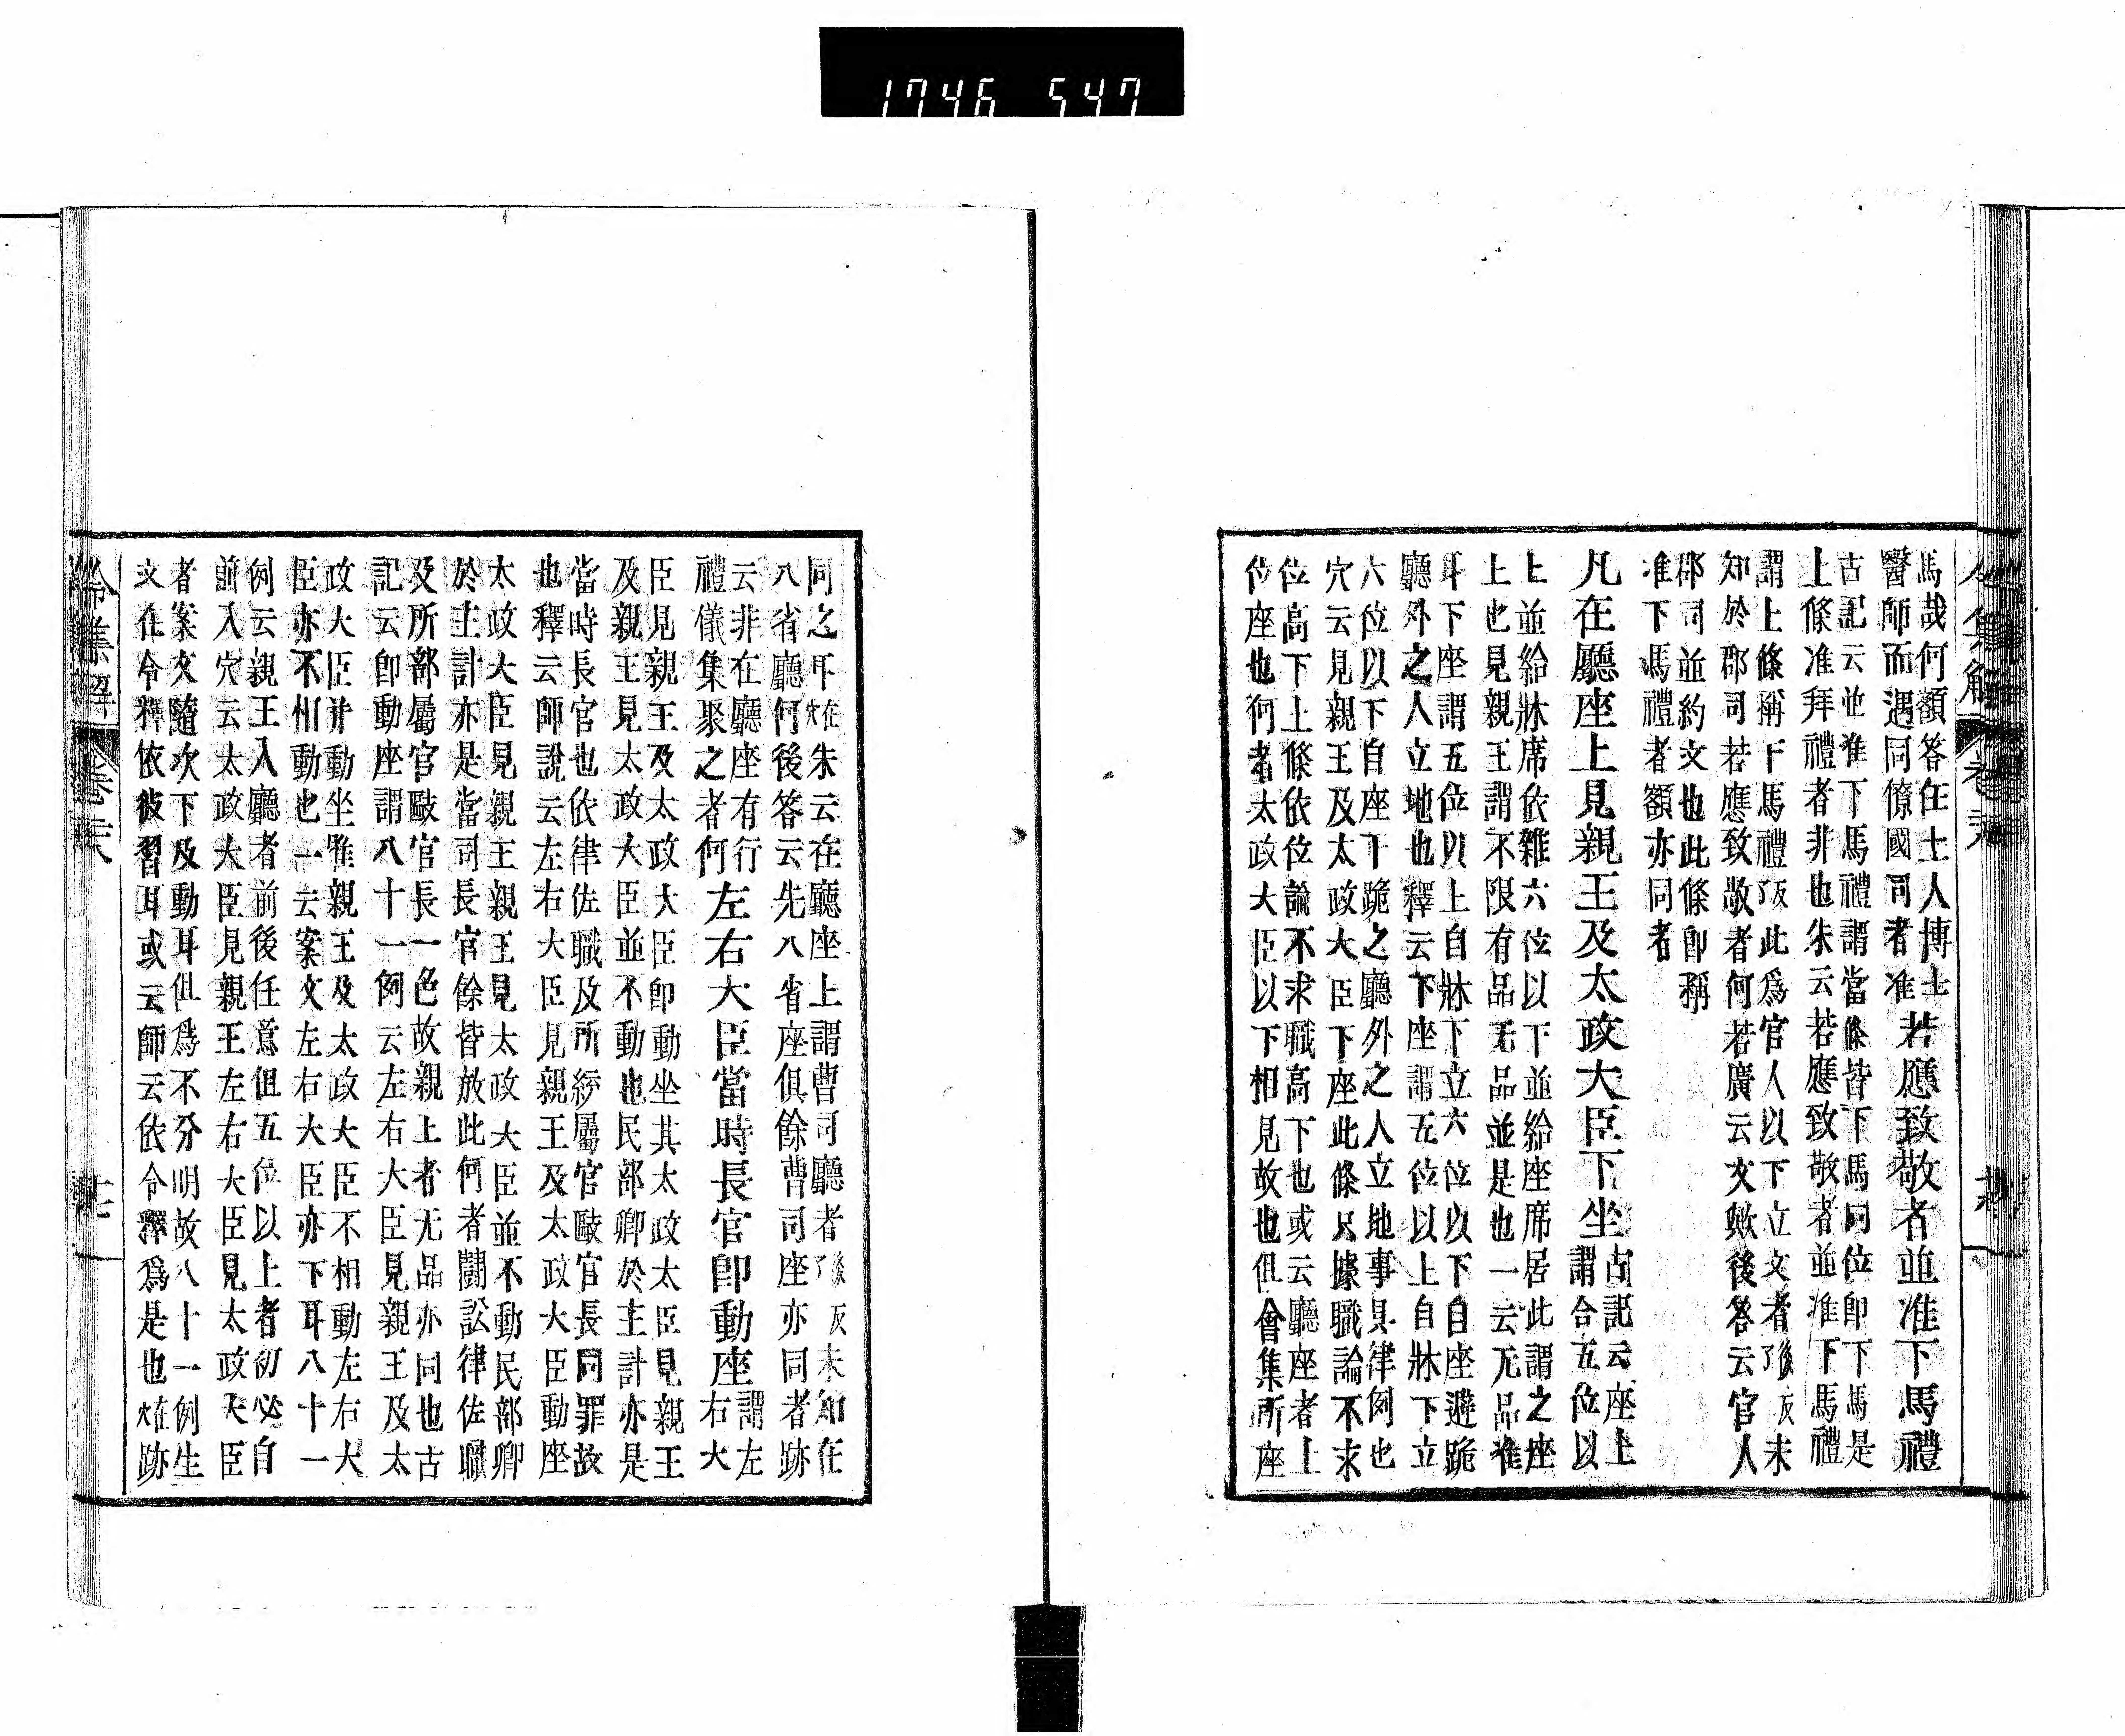 1746 547
馬哉何額答任土人博士
醫師而遇同僚國司者准
若應致敬者並准下馬禮
古記云並准下馬禮謂當條皆下馬同位卽下馬是
上條准拜禮者非也朱云若應致敬者並准下馬禮
謂上條稱下馬禮 此爲官人以下立文者 未
知於郡司若應致敬者何若廣云文歟後答云官人
郡司並約文也此條卽稱
准下馬禮者額亦同者
凡在廳座上見親王及太政大臣下坐
古記云座上
謂合五位以
上並給牀席依雜六位以下並給座席居此謂之座
上也見親王謂不限有品无品並是也一云无品准
耳下座謂五位以上自牀下立六位以下自座避跪
廳外之人立地也釋云下座謂五位以上自牀下立
六位以下自座下跪之廳外之人立地事具律例也
穴云見親王及太政大臣下座此條只據職論不求
位高下上條依位論不求職高下也或云廳座者上
位座也何者太政大臣以下相見故也但會集所座
令集解 卷
同之耳 朱云在廳座上謂曹司廳者 未知在
八省廳何後答云先八省座俱餘曹司座亦同者跡
云非在廳座有行
禮儀集聚之者何
左右大臣當時長官卽動座
謂左
右大
臣見親王及太政大臣卽動坐其太政太臣見親王
及親王見太政大臣並不動也民部卿於主計亦是
當時長官也依律佐職及所統屬官毆官長同罪故
也釋云師說云左右大臣見親王及太政大臣動座
太政大臣見親王親王見太政大臣並不動民部卿
於主計亦是當司長官餘皆放此何者鬪訟律佐職
及所部屬官毆官長一色故親上者无品亦同也古
記云卽動座謂八十一例云左右大臣見親王及太
政大臣幷動坐唯親王及太政大臣不相動左右大
臣亦不相動也一云案文左右大臣亦下耳八十一
例云親王入廳者前後任意但五位以上者初必自
前入穴云太政大臣見親王左右大臣見太政大臣
者案文隨次下及動耳但爲不分明故八十一例生
文在令釋依彼習耳或云師云依令釋爲是也 跡
令集解 卷 六